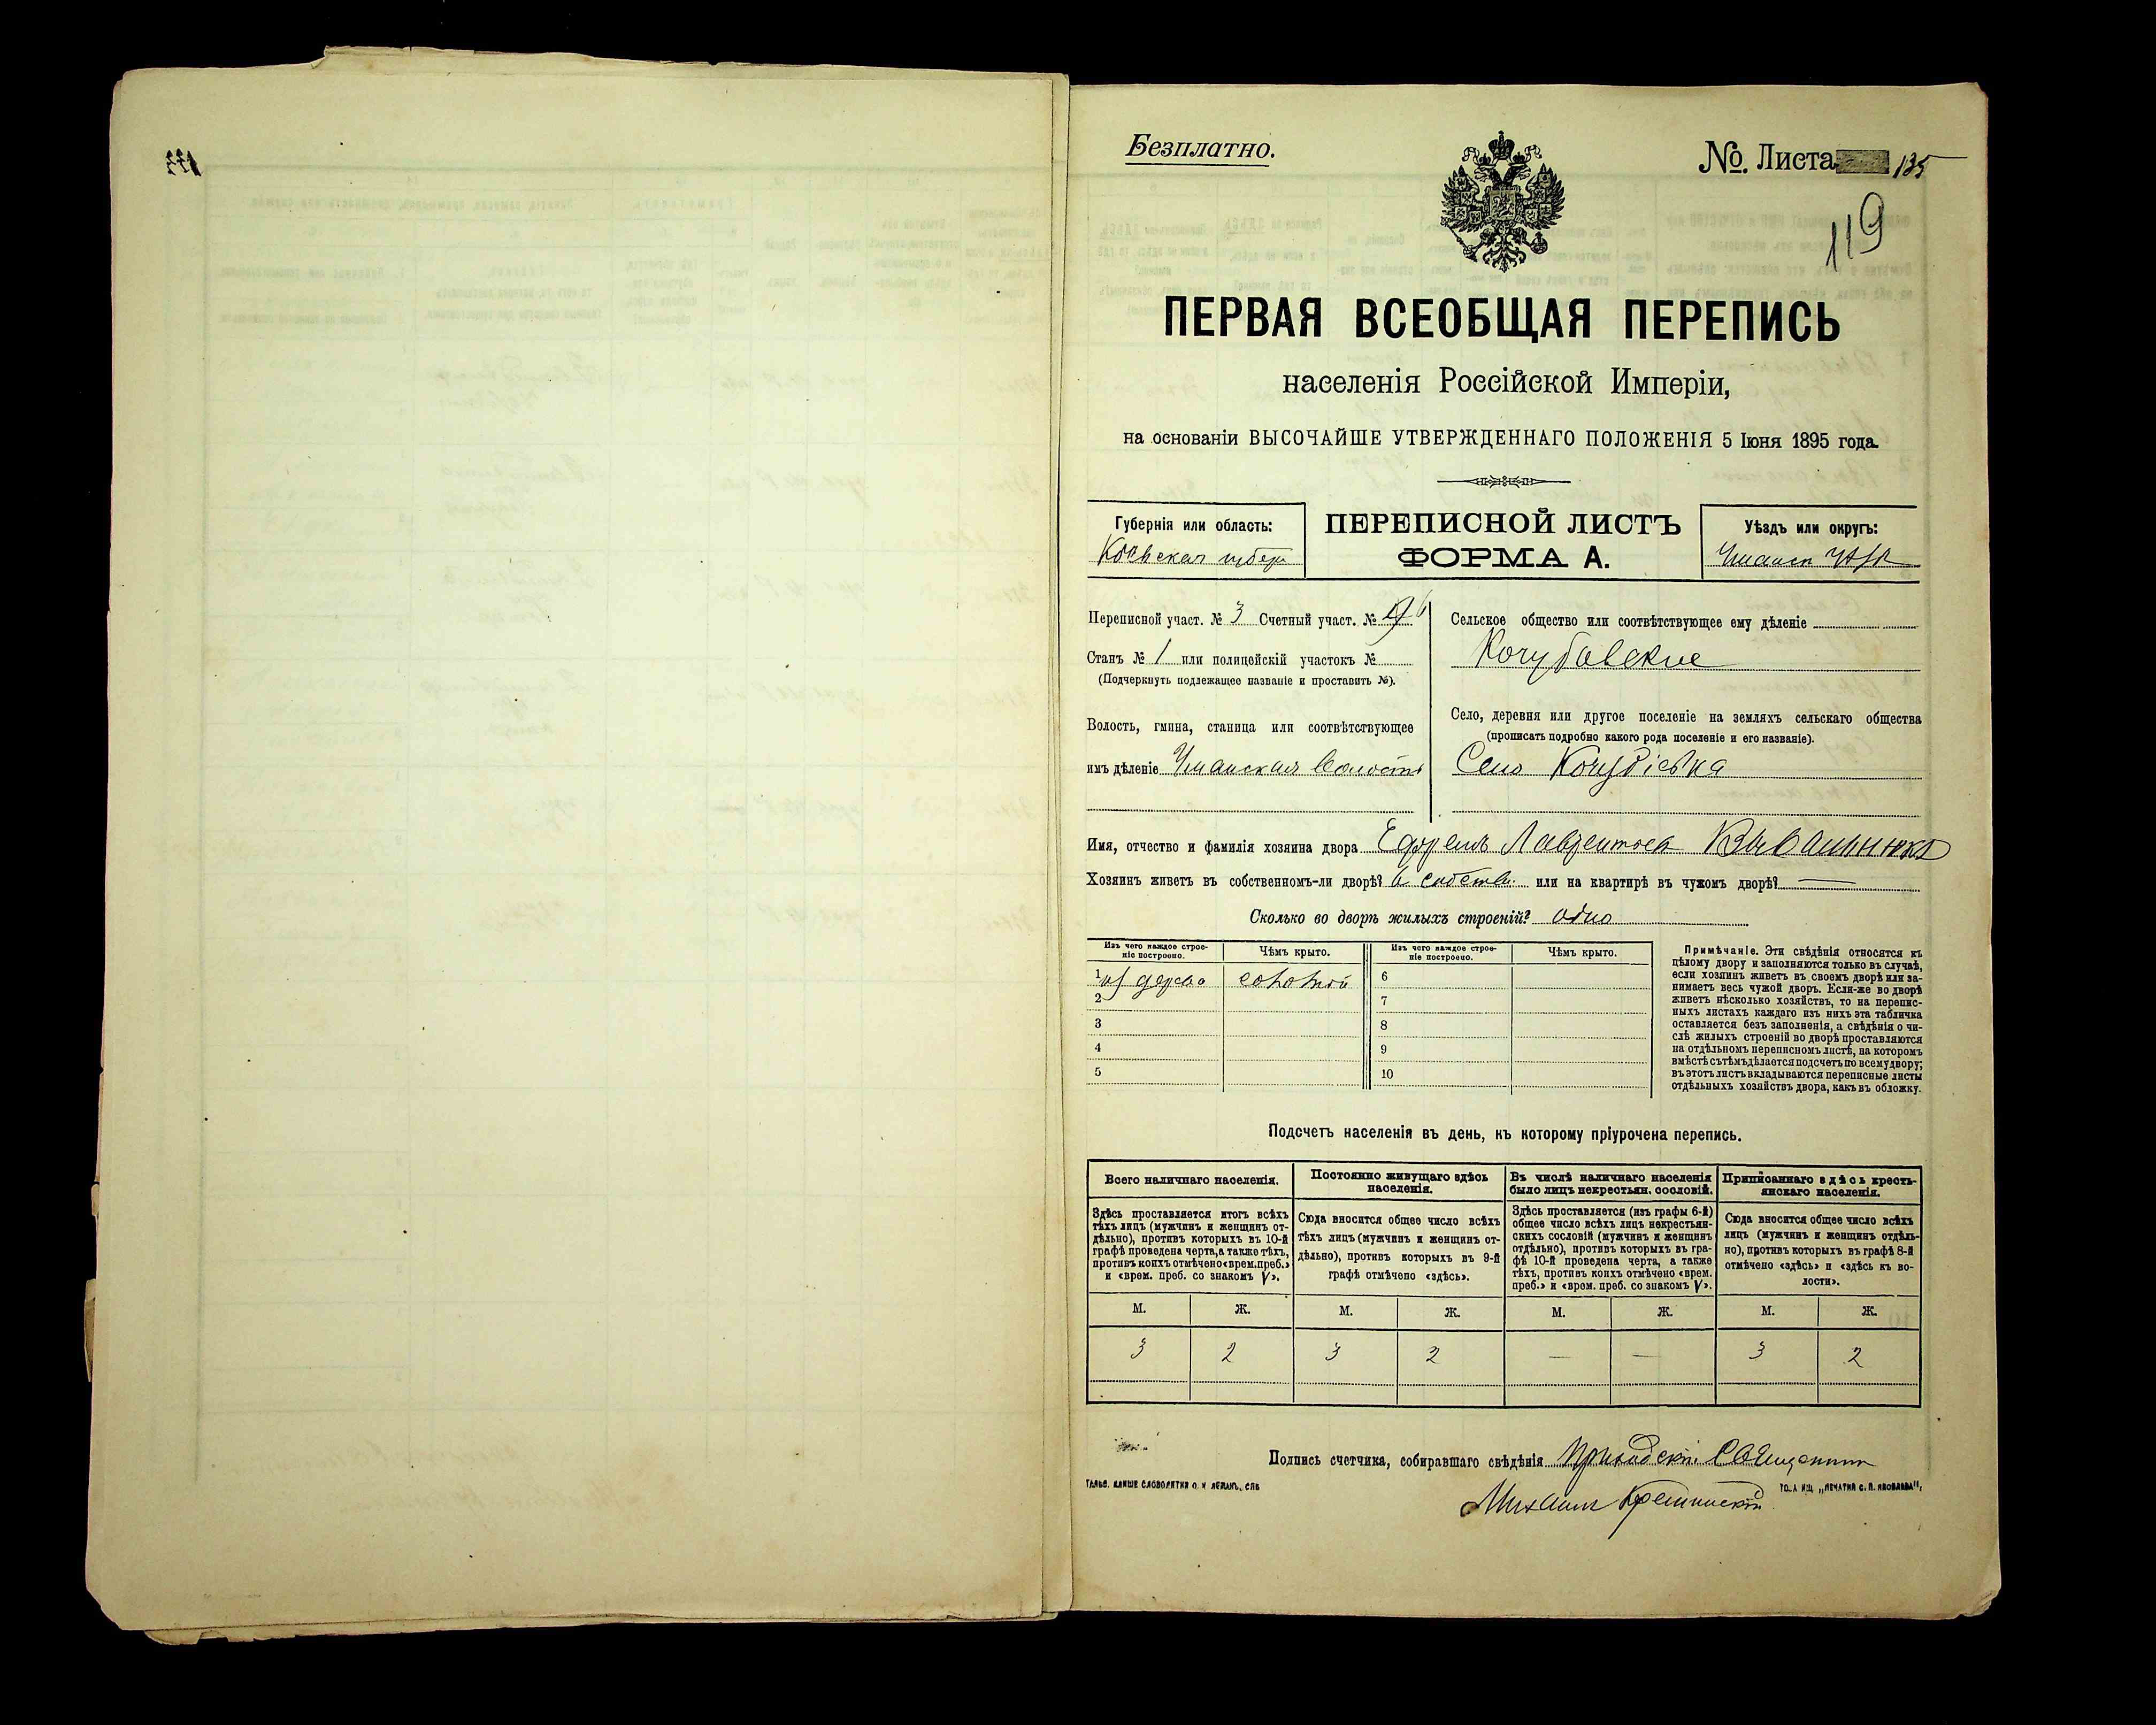 Безплатно.
№. Листа 135
119
ПЕРВАЯ ВСЕОБЩАЯ ПЕРЕПИСЬ
населенія Россійской Имперіи,
на основаніи ВЫСОЧАЙШЕ УТВЕРЖДЕННАГО ПОЛОЖЕНІЯ 5 Іюня 1895 года.
Губернія или область:
Кіевская губер
ПЕРЕПИСНОЙ ЛИСТЪ
ФОРМА А.
Уѣздъ или округъ:
Уманск
Переписной участ. № 3 Счетный участ. №
Станъ № 1 или полицейскій участокъ №
(Подчеркнуть подлежащее названіе и проставить №).
Волость, гмина, станица или соотвѣтствующее
имъ дѣленіе Уманская Волость
Сельское общество или соотвѣтствующее ему дѣленіе
Кочубѣевские
Село, деревня или другое поселеніе на земляхъ сельскаго общества
(прописать подробно какого рода поселеніе и его названіе).
Село Кочубіевка
Имя, отчество и фамилія хозяина двора Ефремъ Лаврентьев
Хозяинъ живетъ въ собственномъ-ли дворѣ? в собств. или на квартирѣ въ чужомъ дворѣ? —
Сколько во дворѣ жилыхъ строеній? одно
Изъ чего каждое строе-
ніе построено.
Чѣмъ крыто.
Изъ чего каждое строе-
ніе построено.
Чѣмъ крыто.
1 из дерева соломой
2
3
4
5
6
7
8
9
10
Примѣчаніе. Эти свѣдѣнія относятся къ
цѣлому двору и заполняются только въ случаѣ,
если хозяинъ живетъ въ своемъ дворѣ или за-
нимаетъ весь чужой дворъ. Если-же во дворѣ
живетъ нѣсколько хозяйствъ, то на перепис-
ныхъ листахъ каждаго изъ нихъ эта табличка
оставляется безъ заполненія, а свѣдѣнія о чи-
слѣ жилыхъ строеній во дворѣ проставляются
на отдѣльномъ переписномъ листѣ, на которомъ
вмѣстѣ съ тѣмъ дѣлается подсчетъ по всему двору;
въ этотъ листъ вкладываются переписные листы
отдѣльныхъ хозяйствъ двора, какъ въ обложку.
Подсчетъ населенія въ день, къ которому пріурочена перепись.
Всего наличнаго населенія.
Здѣсь проставляется итогъ всѣхъ
тѣхъ лицъ (мужчинъ и женщинъ от-
дѣльно), противъ которыхъ въ 10-й
графѣ проведена черта, а также тѣхъ,
противъ коихъ отмѣчено «врем. преб.»
и «врем. преб. со знакомъ V».
Постоянно живущаго здѣсь
населенія.
Сюда вносится общее число всѣхъ
тѣхъ лицъ (мужчинъ и женщинъ от-
дѣльно), противъ которыхъ въ 9-й
графѣ отмѣчено «здѣсь».
Въ числѣ наличнаго населенія
было лицъ некрестьян. сословій.
Здѣсь проставляется (изъ графы 6-й)
общее число всѣхъ лицъ некрестьян-
скихъ сословій (мужчинъ и женщинъ
отдѣльно), противъ которыхъ въ гра-
фѣ 10-й проведена черта, а также
тѣхъ, противъ коихъ отмѣчено «врем.
преб.» и «врем. преб. со знакомъ V».
Приписаннаго здѣсь кресть-
янскаго населенія.
Сюда вносится общее число всѣхъ
лицъ (мужчинъ и женщинъ отдѣль-
но), противъ которыхъ въ графѣ 8-й
отмѣчено «здѣсь» и «здѣсь къ во-
лости».
М. Ж. М. Ж. М. Ж. М. Ж.
3 2 3 2 — — 3 2
Подпись счетчика, собиравшаго свѣдѣнія Приходскій Священник
Михаилъ
ГАЛЬВ. КЛИШЕ СЛОВОЛИТНИ О. И. ЛЕМАНЪ, СПБ